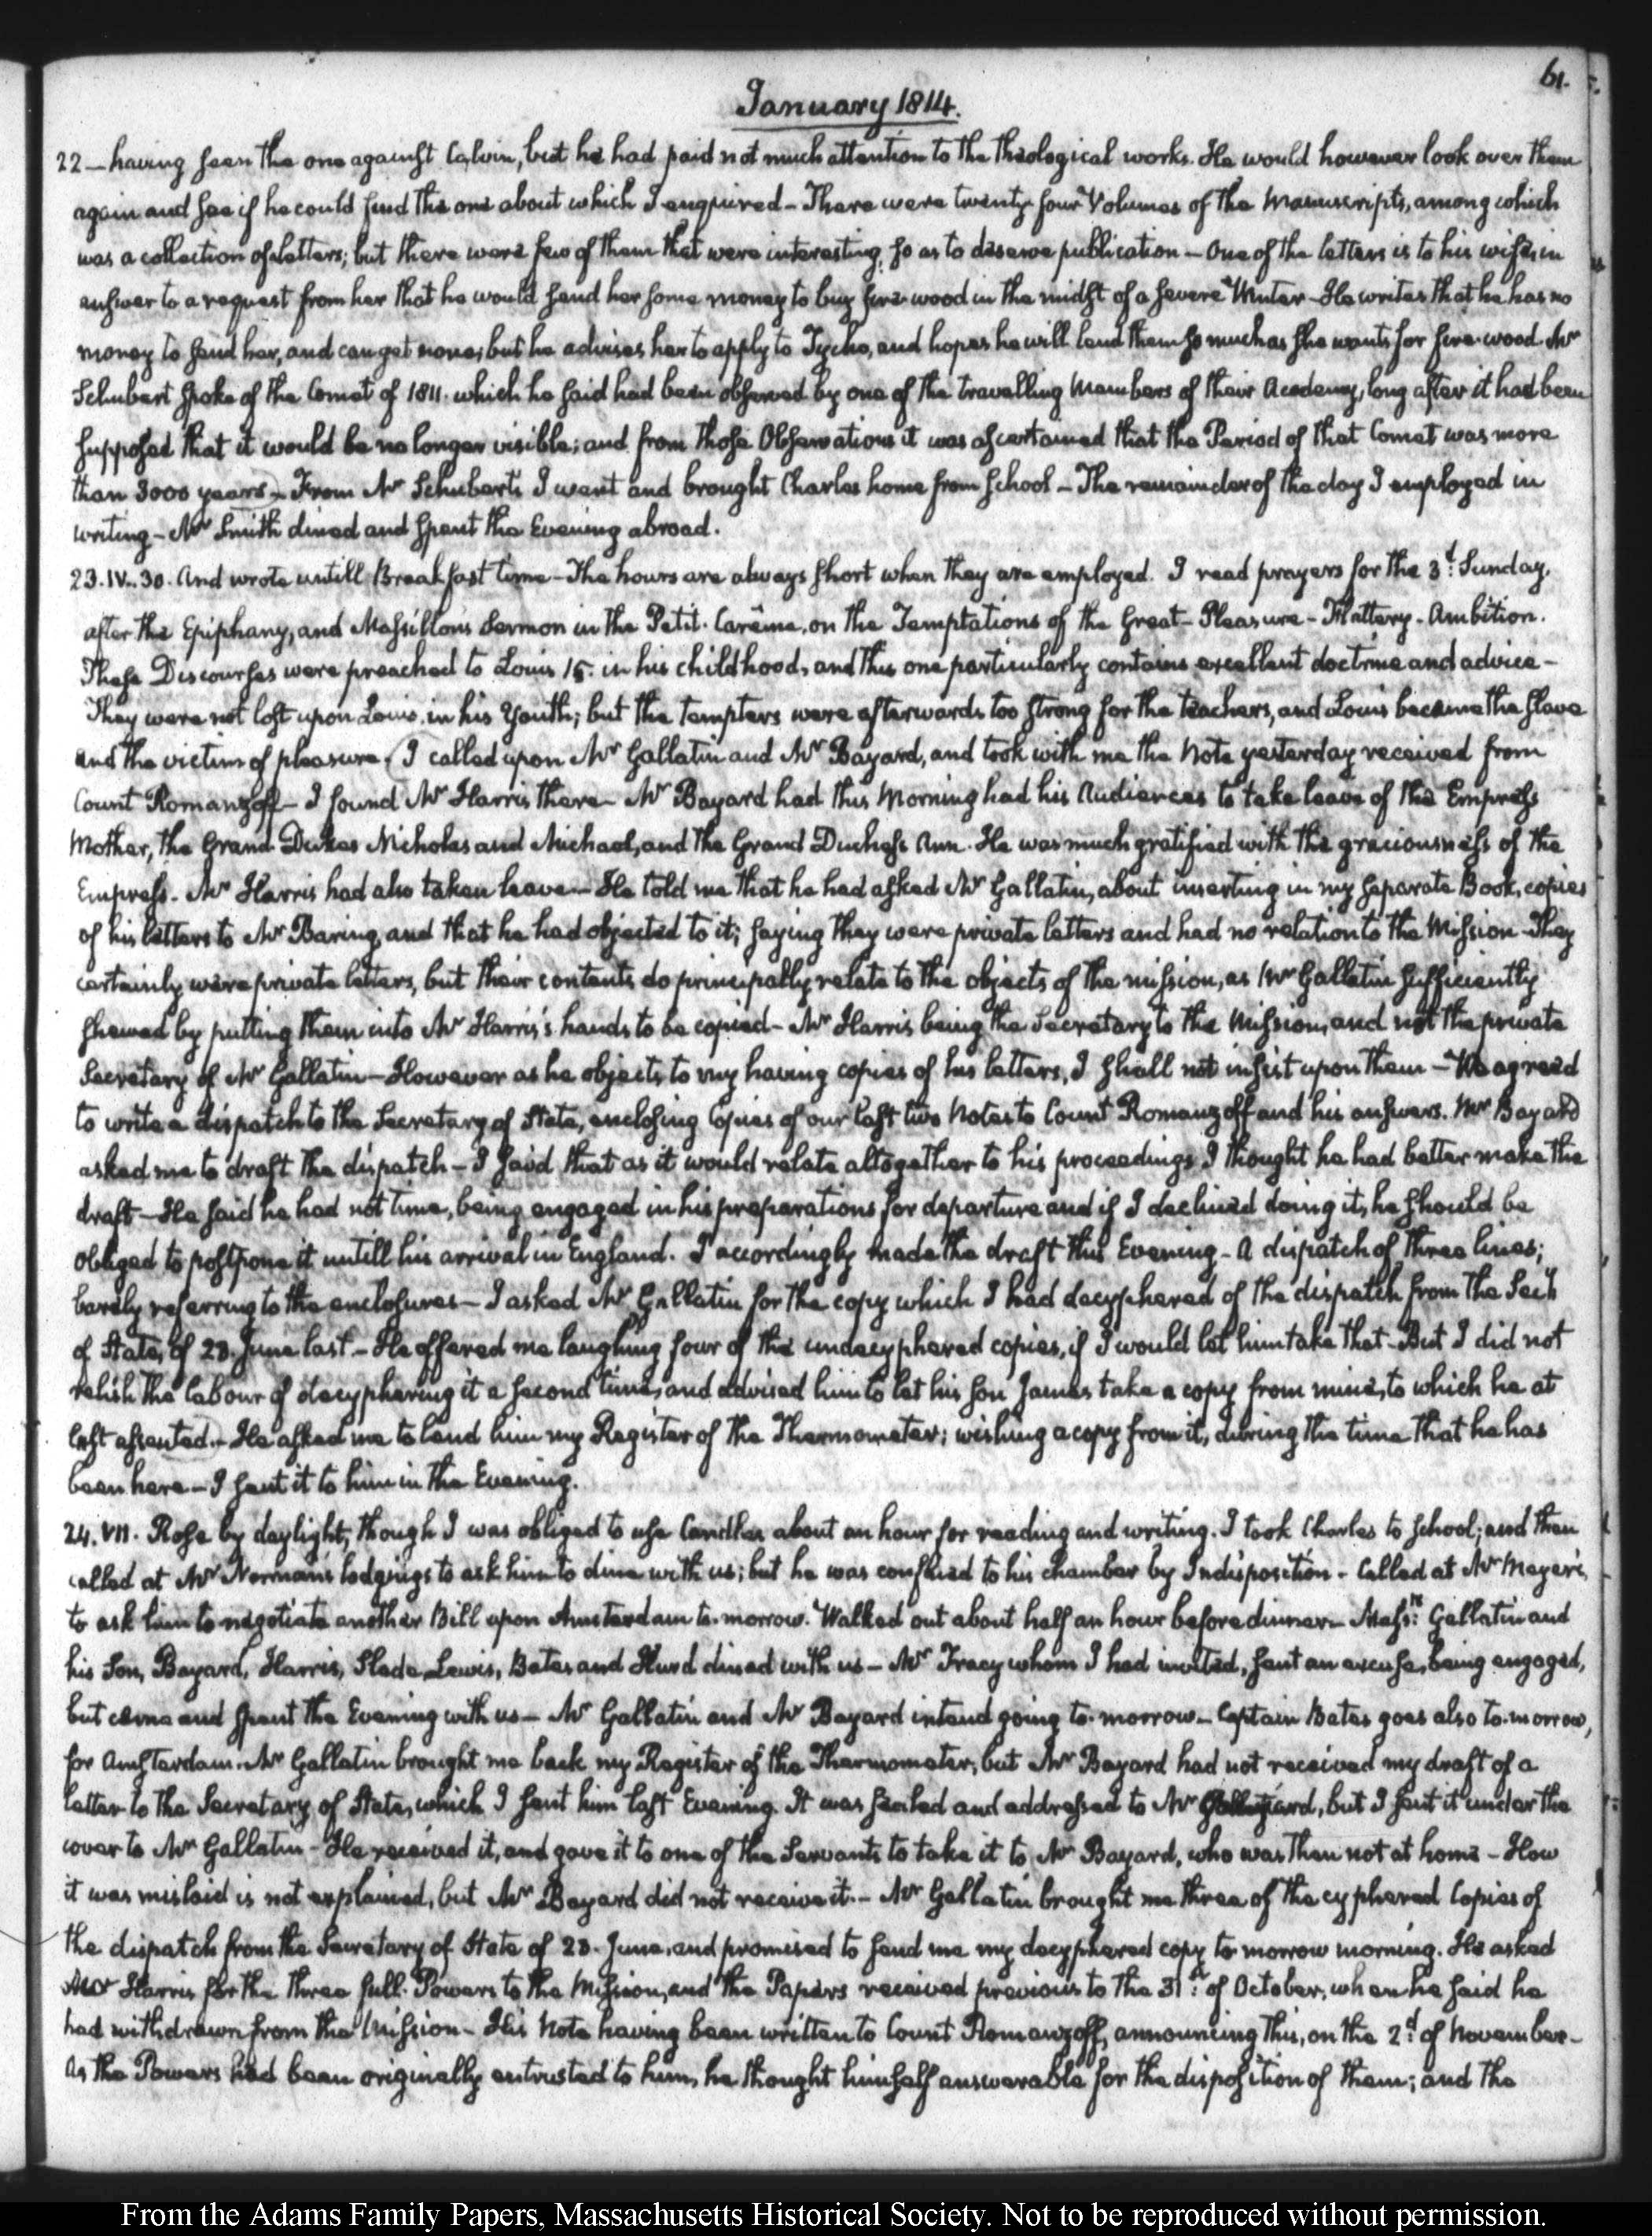 61.
January 1814.
22 – having seen the one against Calvin, but he had paid not much attention to the theological works. He would however look over them
again and see if he could find the one about which I enquired – There were twenty four Volumes of the Manuscripts, among which
was a collection of letters; but there were few of them that were interesting, so as to deserve publication – One of the letters is to his wife, in
answer to a request from her that he would send her some money to buy fire-wood in the midst of a severe Winter – He writes that he has no
money to send her, and can get none; but he advises her to apply to Tycho, and hopes he will lend them so much as she wants for fire-wood. Mr
Schubert spoke of the Comet of 1811. which he said had been observed by one of the travelling Members of their Academy, long after it had been
supposed that it would be no longer visible; and from those Observations it was ascertained that the Period of that Comet was more
than 3000 years – From Mr Schubert's I went and brought Charles home from school – The remainder of the day I employed in
writing – Mr Smith dined and spent the Evening abroad.
23. IV..30. And wrote untill Breakfast time – The hours are always short when they are employed. I read prayers for the 3d: Sunday,
after the Epiphany, and Massillon's Sermon in the Petit-Carême, on the Temptations of the Great – Pleasure – Flattery – Ambition.
These Discourses were preached to Louis 15. in his childhood, and this one particularly contains excellent doctrine and advice –
They were not lost upon Louis, in his Youth; but the tempters were afterwards too strong for the teachers, and Louis became the slave
and the victim of pleasure. (I called upon Mr Gallatin and Mr Bayard, and took with me the Note yesterday received from
Count Romanzoff – I found Mr Harris there – Mr Bayard had this Morning had his Audiences to take leave of the Empress
Mother, the Grand Dukes Nicholas and Michael, and the Grand Duchess Ann. He was much gratified with the graciousness of the
Empress – Mr Harris had also taken leave – He told me that he had asked Mr Gallatin, about inserting in my separate Book, copies
of his letters to Mr Baring, and that he had objected to it; saying they were private letters and had no relation to the Mission – They
certainly were private letters, but their contents do principally relate to the objects of the mission, as Mr Gallatin sufficiently
shewed by putting them into Mr Harris's hands to be copied – Mr Harris being the Secretary to the Mission, and not the private
Secretary of Mr Gallatin – However as he objects to my having copies of his letters, I shall not insist upon them – We agreed
to write a dispatch to the Secretary of State, enclosing Copies of our last two Notes to Count Romanzoff and his answers. Mr Bayard
asked me to draft the dispatch – I said that as it would relate altogether to his proceedings I thought he had better make the
draft – He said he had not time, being engaged in his preparations for departure and if I declined doing it, he should be
obliged to postpone it untill his arrival in England. I accordingly made the draft this Evening – A dispatch of three lines;
barely referring to the enclosures – I asked Mr Gallatin for the copy which I had decyphered of the dispatch from the Secy
of State, of 23. June last – He offered me laughing four of the undecyphered copies, if I would let him take that – But I did not
relish the labour of decyphering it a second time, and advised him to let his Son James take a copy from mine, to which he at
last assented – He asked me to lend him my Register of the Thermometer; wishing a copy from it, during the time that he has
been here – I sent it to him in the Evening.
24. VII. Rose by daylight, though I was obliged to use Candles about an hour for reading and writing. I took Charles to School; and then
called at Mr Norman's lodgings to ask him to dine with us; but he was confined to his chamber by Indisposition – Called at Mr Meyer's,
to ask him to negotiate another Bill upon Amsterdam to-morrow. Walked out about half an hour before dinner – Messrs: Gallatin and
his Son, Bayard, Harris, Slade, Lewis, Bates and Hurd dined with us – Mr Tracy whom I had invited, sent an excuse, being engaged,
but came and spent the Evening with us – Mr Gallatin and Mr Bayard intend going to-morrow – Captain Bates goes also to-morrow,
for Amsterdam. Mr Gallatin brought me back my Register of the Thermometer, but Mr Bayard had not received my draft of a
letter to the Secretary of State, which I sent him last Evening. It was sealed and addressed to Mr Bayard, but I sent it under the
cover to Mr Gallatin – He received it, and gave it to one of the Servants to take it to Mr Bayard, who was then not at home – How
it was mislaid is not explained, but Mr Bayard did not receive it – Mr Gallatin brought me three of the cyphered Copies of
the dispatch from the Secretary of State of 23. June, and promised to send me my decyphered copy to-morrow morning. He asked
Mr Harris for the three full-Powers to the Mission, and the Papers received previous to the 31st: of October, when he said he
had withdrawn from the Mission – His Note having been written to Count Romanzoff, announcing this, on the 2d: of November –
As the Powers had been originally entrusted to him, he thought himself answerable for the disposition of them; and the
From the Adams Family Papers, Massachusetts Historical Society. Not to be reproduced without permission.